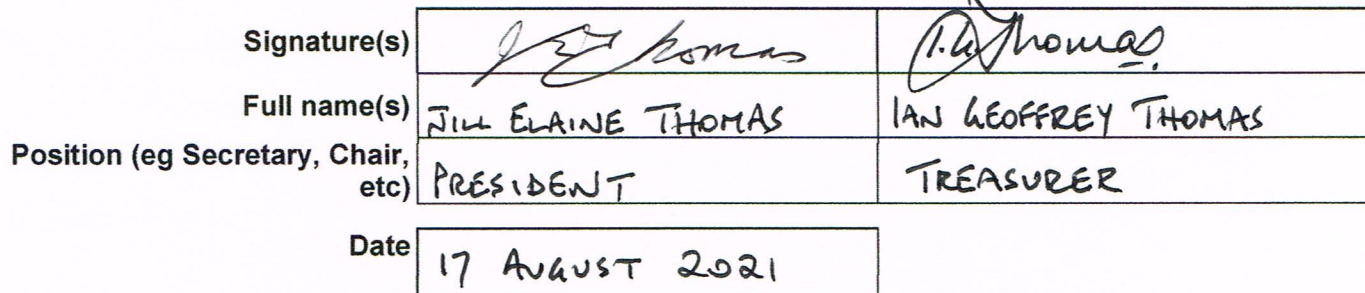 Signature(s) J E Thomas I.G. Thomas
Full name(s) JILL ELAINE THOMAS IAN GEOFFREY THOMAS
Position (eg Secretary, Chair,
etc) PRESIDENT TREASURER
Date 17 AUGUST 2021